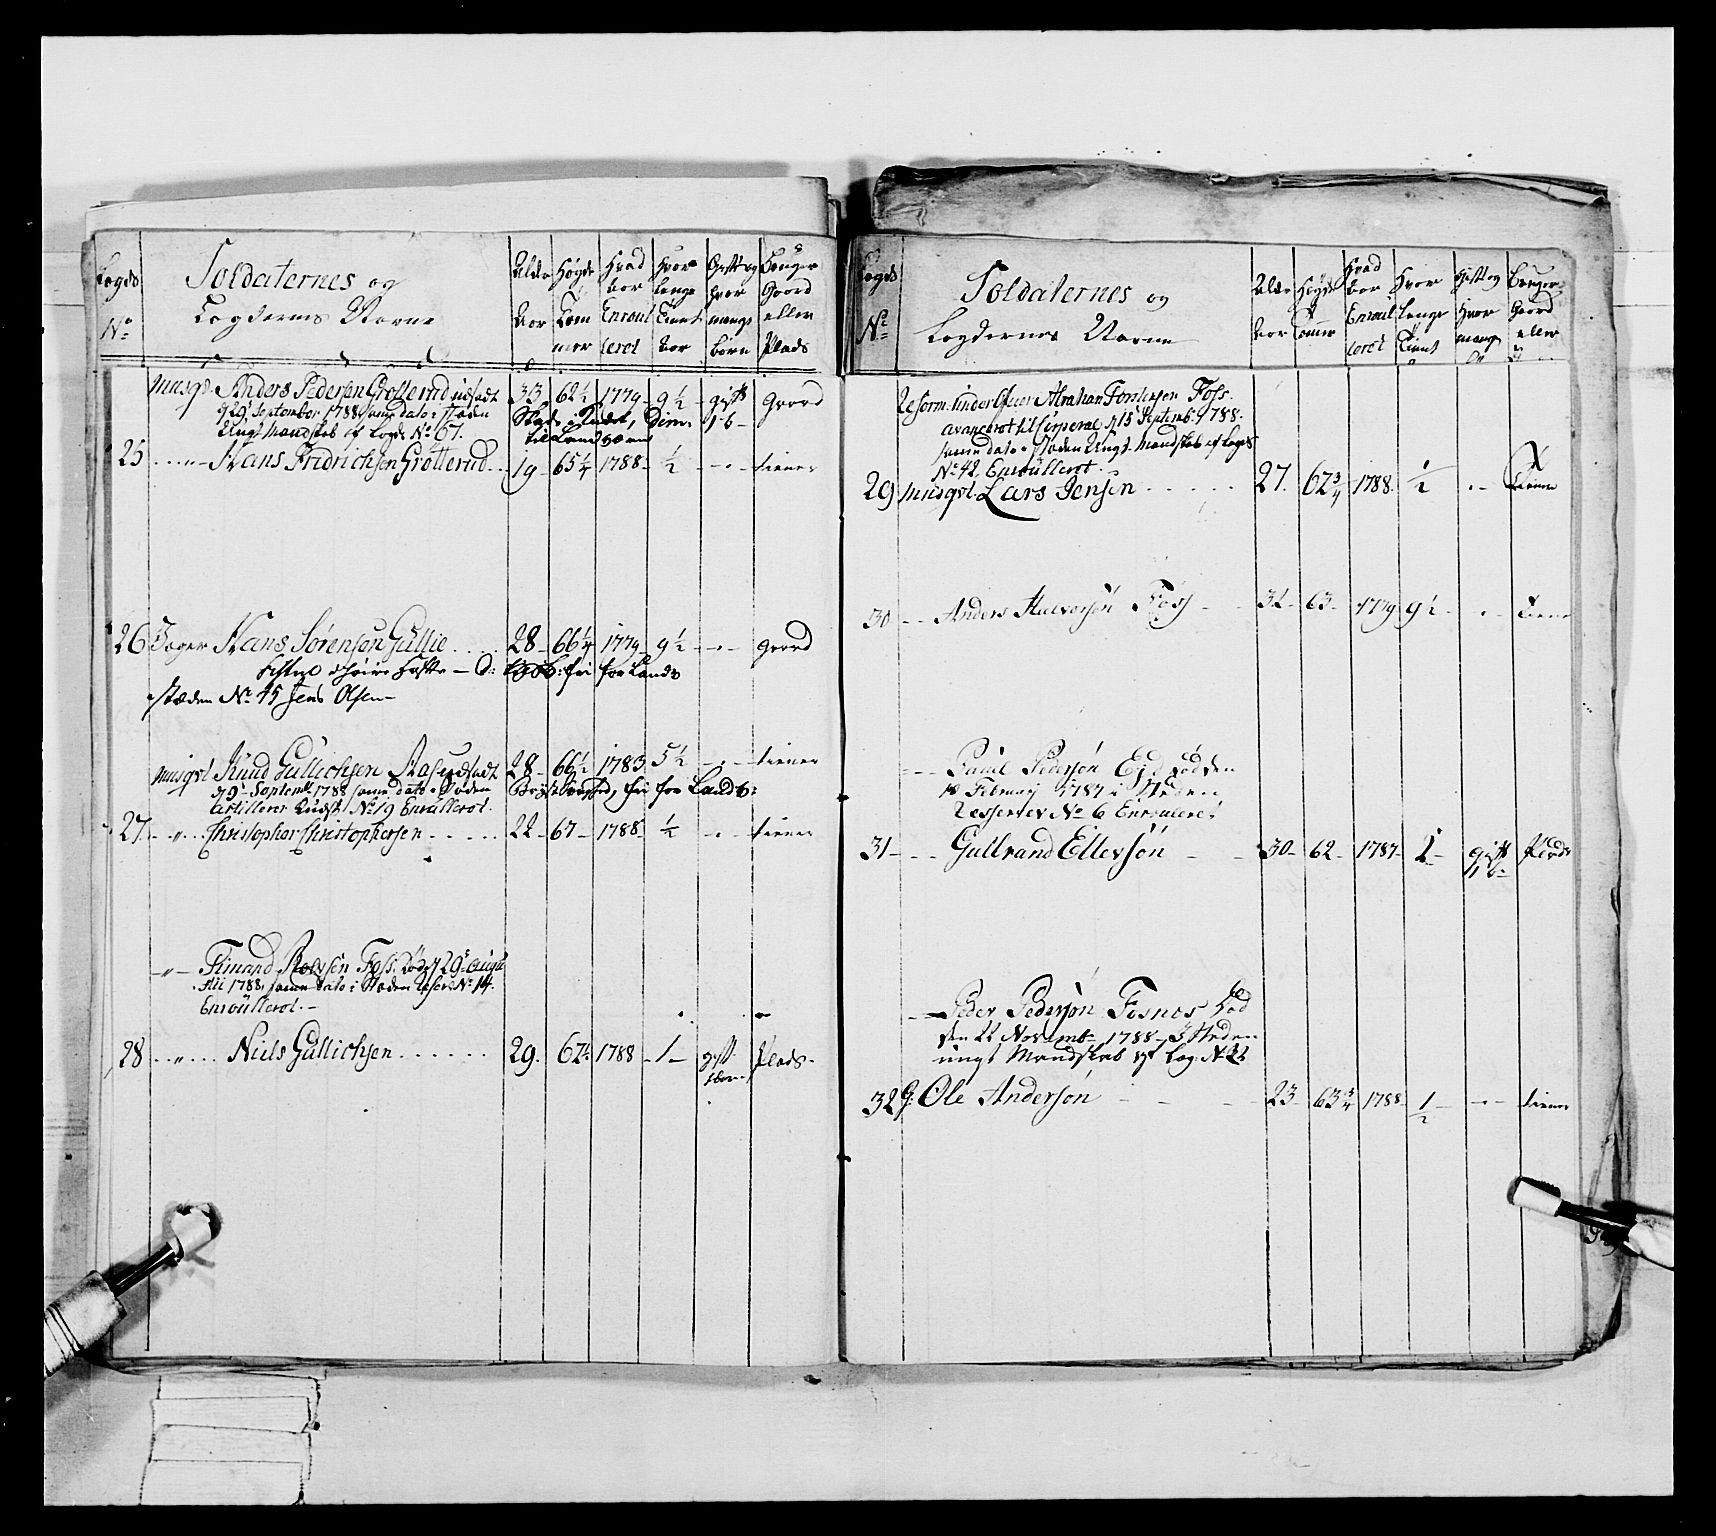 Legds No
Soldaternes og
Legdernes Navne
Alder Aar
Høyde Tommer
Hvad Aar Enroulleret
Hvor længe Tient Aar
Gift og hvor mange børn
Bruger Gaard eller Plads
Musqt. Anders Pedersen Grøtterud udsadt 33 62½ 1779 9½ gift Gaard
d 29 September 1788 samme dato i stæden
Ungt Mandskab af Legd No 67.
25 — " — Hans Fridrichsen Grøtterud 19 65¼ 1788 ½ — " — tiener
26 Jæger Hans Sørensen Gullie 28 66¼ 1779 9½ — " — Gaard
i stæden No 45 Jens Olsen
Musqt Knud Gullichsen Aas udsadt 28 66½ 1783 5½ — " — tiener
d 9 Septembr 1788 samme dato i stæden
Artillerie Kudsk No 19 Enroulleret
27 — " — Christopher Christophersen 22 67 1788 ½ — " — tiener
— " — Amund Roersen Foss død d 29 Augu
stii 1788, samme dato i Stæden Reserve No 14
Enroulleret
28 — " — Niels Gullichsen 29 67½ 1788 1 gift Plads
Legds No
Soldaternes og
Legdernes Navne
Alder Aar
Høyde Tommer
Hvad Aar Enroulleret
Hvor længe Tient
Gift og Hvor mange
Bruger Gaard eller
Reform: Under Officeer Abraham Torstensen Foss
avanceret til Corporal d 15 Septemb. 1788
samme dato i stæden Ungt Mandskab af Legds
No 42 Enroulleret
29 Musqt. Lars Jensen 27 62¾ 1788 ½ — " — tiener
30 — Anders Halvorsøn Foss 32 63 1779 9½ — " — tiener
— Paul Pedersøn Eid død den
18 Februarij 1787 i Steden
Resserver No 6 Enroulleret
31 — Gulbrand Ellevsøn 30 62 1787 2 gift 1 b Plads
— Peder Pedersøn Fosnes død
den 22 Novemb. 1788 i Steden
ungt Mandskab af Leg: No 32
32 J: Ole Andersøn 23 63¾ 1788 ½ — " — tiener